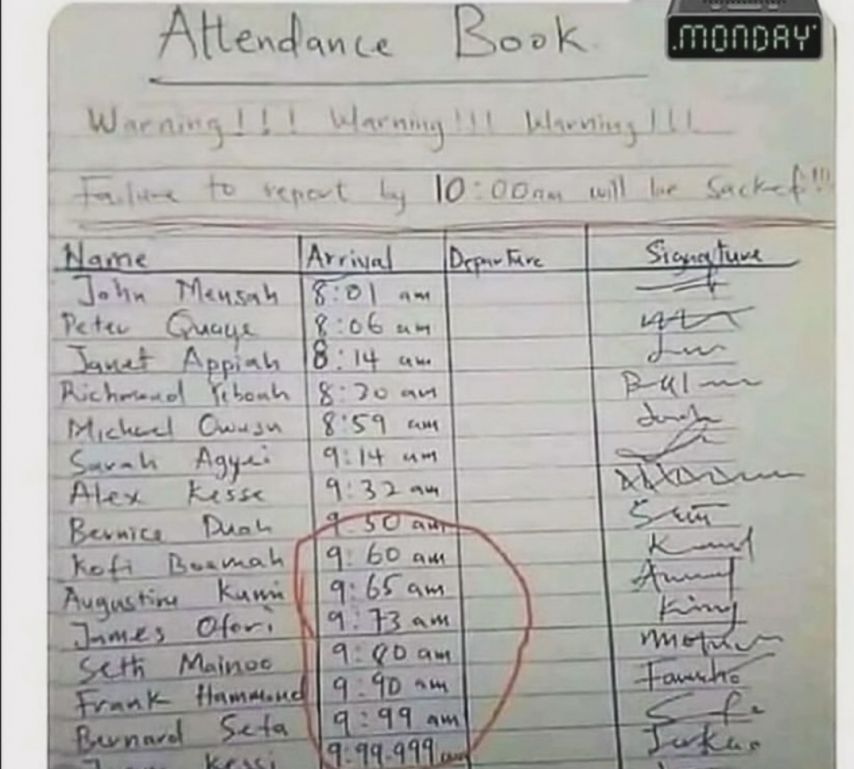 Attendance Book
.MONDAY
Warning!!! Warning!!! Warning!!!
Failure to report by 10:00am will be Sacked!!!
Name Arrival Departure Signature
John Mensah 8:01 am
Peter Quaye 8:06 am
Janet Appiah 8:14 am
Richmond Yeboah 8:20 am
Michael Owusu 8:59 am
Sarah Agyei 9:14 am
Alex Kesse 9:32 am
Bernice Duah 9:50 am
Kofi Boamah 9:60 am
Augustine Kumi 9:65 am
James Ofori 9:73 am
Seth Mainoo 9:80 am
Frank Hammond 9:90 am
Bernard Sefa 9:99 am
Kessi 9:99.999 am